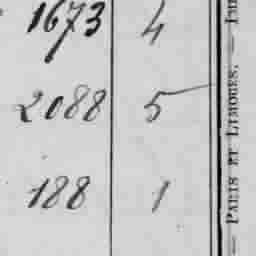 1673 4
2088 5
188 1
— PARIS ET LIMOGES. —